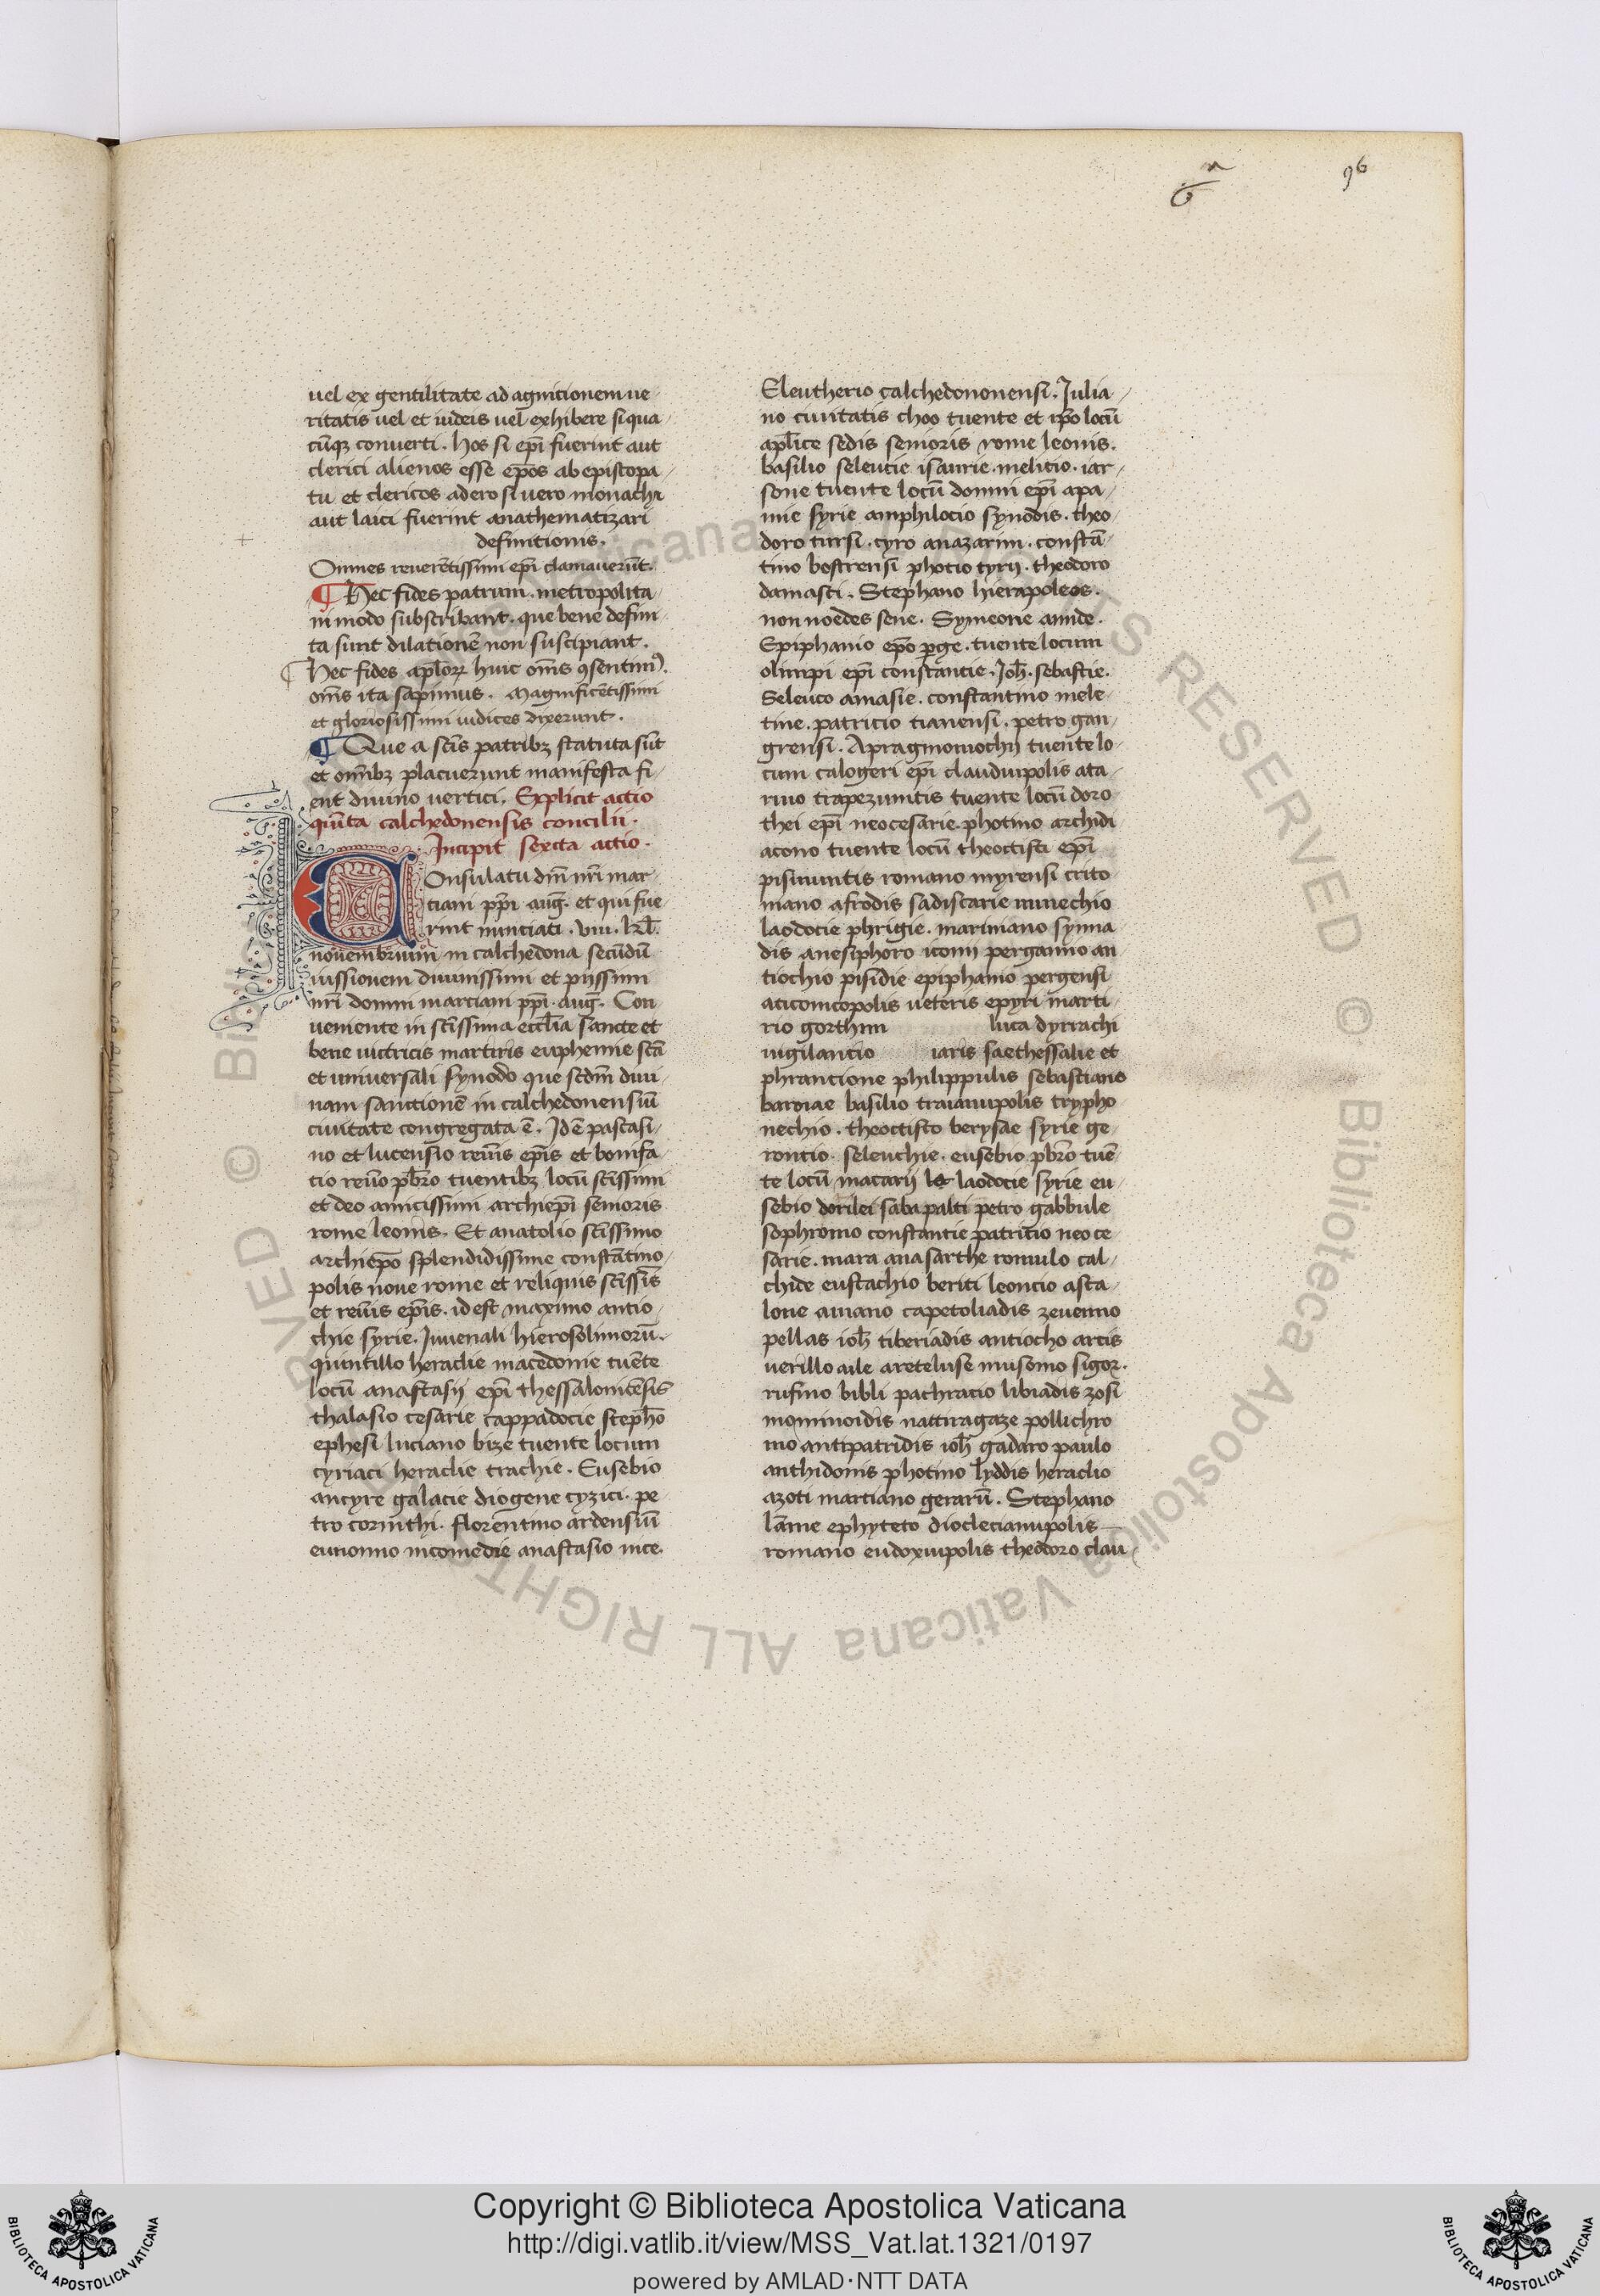 96
uel ex gentilitate ad agnicionem ue-
ritatis uel et iudeis uel exhibere si qua
cūqꝫ conuerti. hos si ep̄i fuerint aut
clerici alienos esse ep̄os ab episcopa-
tu et clericos a clero si uero monachi
aut laici fuerint anathematizari
definitionis.
Omnes reuerētissimi ep̄i clamauerūt.
¶ Hec fides patrum. metropolita-
ni modo subscribant. que bene defini-
ta sunt dilationē non suscipiant.
Hec fides apl̄oꝝ huic om̄s ꝯsentimꝰ.
om̄s ita sapimus. Magnificētissimi
et gloriosissimi iudices dixerunt.
¶ Que a sc̄is patribꝫ statuta sūt
et om̄ibꝫ placuerunt manifesta fi-
ent diuino uertici. Explicit actio
quīta calchedonensis concilii.
Incipit sexta actio.
COnsulatu dn̄i nr̄i mar-
ciani pp̄i aug̅. et qui fue
rint nunciati. viii. kl̅.
nouembrium in calchedona secūdū
iussionem diuinissimi et piissimi
nr̄i domini marciani pp̄i. aug̅. Con-
ueniente in sc̄issima eccl̄ia sancte et
bene uictricis martiris euphemie sc̄a
et uniuersali synodo que scdm̄ diui-
nam sanctionē in calchedonensiū
ciuitate congregata ē. Id ē pascasi-
no et lucensio reuīs ep̄is et bonifa-
cio reuīo p̄bro tuentibꝫ locū sc̄issimi
et deo amicissimi archiep̄i senioris
rome leonis. Et anatolio sc̄issimo
archiep̄o splendidissime constātino-
polis noue rome et reliquis sc̄issīs
et reuīs ep̄is. id est maximo antio-
chie syrie. Iuuenali hierosolimorū.
quintillo heraclie macedonie tuēte
locū anastasij ep̄i thessalonicēsis
thalasio cesarie cappadocie steph̄o
ephesi luciano bize tuente locum
cyriaci heraclie trachie. Eusebio
ancyre galacie diogene cyzici. pe-
tro corinthi. florentino ardensiū
eunomio nicomedie anastasio nice.
Eleutherio calchedononensi. Iulia-
no ciuitatis choo tuente et ip̄o locū
apl̄ice sedis senioris rome leonis.
basilio seleucie isaurie. melicio. iar-
sone tuente locū domni ep̄i apa-
mie syrie amphilocio synodis. theo-
doro tursi. cyro anazarim. constā-
tino bostrensi photio tyrij. theodoro
damasci. Stephano hierapoleos.
non noedes sene. Symeone amide.
Epiphanio ep̄o ꝑge. tuente locum
olimpi ep̄i constancie. Joh̄. sebastie.
Seleuco amasie. constantino mele-
tine. patricio tianensi. petro gan-
grensi. Apragmoniochij tuente lo-
cum calogeri ep̄i claudiupolis ata-
rino trapezuntis tuente locū doro-
thei ep̄i neocesarie. photino archidi
acono tuente locū theoctisti ep̄i
pisinuntis romano myrensi crito
mano afrodis sadiscarie nunechio
laodocie phrigie. mariniano synna-
dis anesiphoro iconij pergamio an
tiochio pisidie epiphanio pergensi
aticonicopolis ueteris epyri marti-
rio gorthini luca dyrrachi
uigilancio iaris sae thessalie et
phrancione philippulis sebastiano
baroiae basilio traianupolis trypho
nechio. theoctisto berysae syrie ge-
roncio. seleuchie. eusebio p̄bro tuē-
te locū macarij laodocie syrie eu-
sebio dorilei saba palti petro gabbule
sophronio constantie patricio neoce
sarie. mara anasarthe romulo cal-
chide eustachio beriti leoncio asca-
lone aniano capetoliadis zeuenno
pellas ioh̄ tiberiadis antiocho arcis
uerillo aile areteluse musonio sigor.
rufino bibli pachracio libiadis zosi
mo minoidis nattiragaze pollichro
nio antipatridis ioh̄ gadaro paulo
anthidonis photino lyddis heraclio
azoti marciano gerarū. Stephano
lāme ephyteto dioclecianupolis
romano eudoxiupolis theodoro clau-
Copyright © Biblioteca Apostolica Vaticana
http://digi.vatlib.it/view/MSS_Vat.lat.1321/0197
powered by AMLAD·NTT DATA
BIBLIOTECA APOSTOLICA VATICANA
BIBLIOTECA APOSTOLICA VATICANA